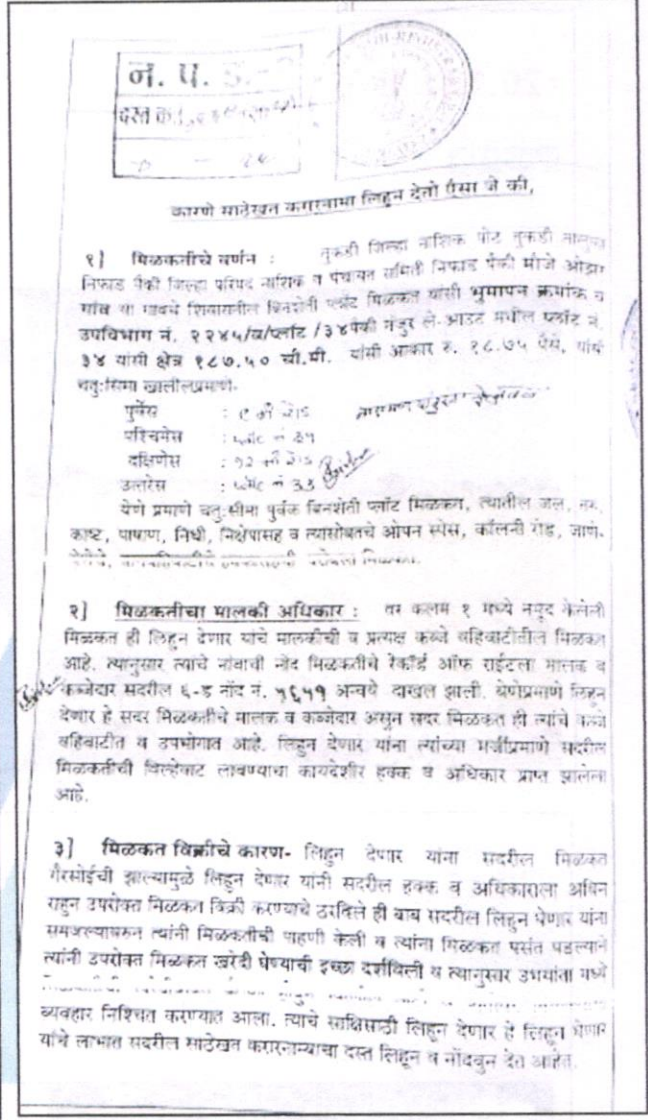 न. प. ड.
दस्त क्र.
कारणे साठेखत करारनामा लिहुन देतो ऐसा जे की,
१] मिळकतीचे वर्णन : तुकडी जिल्हा नाशिक पोट तुकडी तालुका
निफाड पैकी जिल्हा परिषद नाशिक व पंचायत समिती निफाड पैकी मौजे ओझर
गांव या गावचे शिवारातील बिनशेती प्लॉट मिळकत यांसी भुमापन क्रमांक व
उपविभाग नं. २२४५/ब/प्लॉट /३४पैकी मंजुर ले-आउट मधील प्लॉट नं.
३४ यांसी क्षेत्र १८७.५० चौ.मी. यांसी आकार रु. १८.७५ पैसे, यांसी
चतु:सिमा खालीलप्रमाणे-
पुर्वेस : ९ मी रोड
पश्चिमेस : प्लॉट नं ३१
दक्षिणेस : १२ मी रोड
उत्तरेस : प्लॉट नं ३३
येणे प्रमाणे चतु:सीमा पुर्वक बिनशेती प्लॉट मिळकत, त्यातील जल, तरु,
काष्ट, पाषाण, निधी, निक्षेपासह व त्यासोबतचे ओपन स्पेस, कॉलनी रोड, जाणे-
२] मिळकतीचा मालकी अधिकार : वर कलम १ मध्ये नमूद केलेली
मिळकत ही लिहुन देणार यांचे मालकीची व प्रत्यक्ष कब्जे वहिवाटीतील मिळकत
आहे. त्यानुसार त्यांचे नांवाची नोंद मिळकतीचे रेकॉर्ड ऑफ राईटला मालक व
कब्जेदार सदरील ६-ड नोंद नं. ५६५१ अन्वये दाखल झाली. येणेप्रमाणे लिहुन
देणार हे सदर मिळकतीचे मालक व कब्जेदार असुन सदर मिळकत ही त्यांचे कब्जे
वहिवाटीत व उपभोगात आहे. लिहुन देणार यांना त्यांच्या मर्जीप्रमाणे सदरील
मिळकतीची विल्हेवाट लावण्याचा कायदेशीर हक्क व अधिकार प्राप्त झालेला
आहे.
३] मिळकत विक्रीचे कारण- लिहुन देणार यांना सदरील मिळकत
गैरसोईची झाल्यामुळे लिहुन देणार यांनी सदरील हक्क व अधिकाराला अधिन
राहुन उपरोक्त मिळकत विक्री करण्याचे ठरविले ही बाब सदरील लिहुन घेणार यांना
समजल्यावरुन त्यांनी मिळकतीची पाहणी केली व त्यांना मिळकत पसंत पडल्याने
त्यांनी उपरोक्त मिळकत खरेदी घेण्याची इच्छा दर्शविली व त्यानुसार उभयांता मध्ये
व्यवहार निश्चित करण्यात आला. त्याचे साक्षिसाठी लिहुन देणार हे लिहुन घेणार
यांचे लाभात सदरील साठेखत करारनाम्याचा दस्त लिहुन व नोंदवुन देत आहेत.